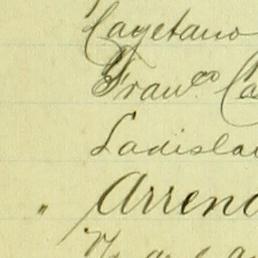 Cayetano
Franco Ca
Ladisla
" Arrend